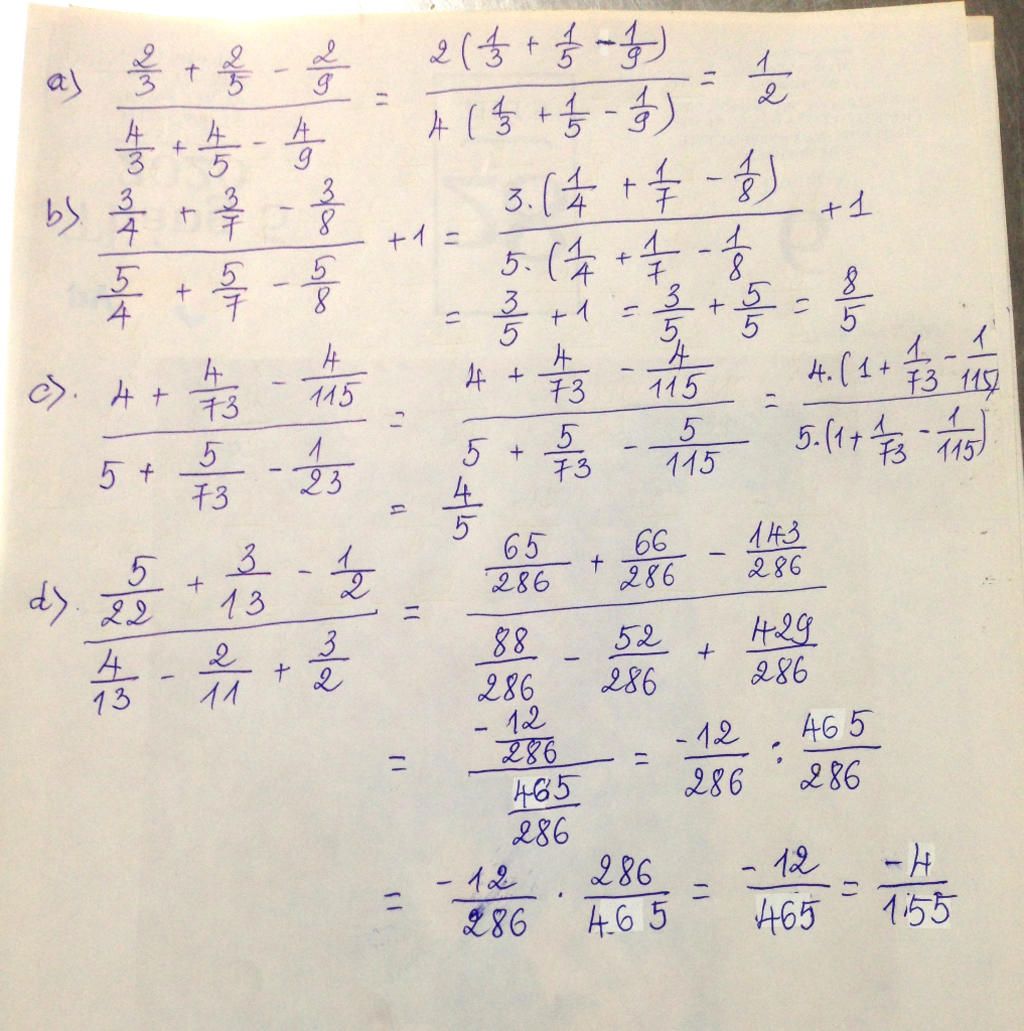 a) (2/3 + 2/5 - 2/9) / (4/3 + 4/5 - 4/9) = 2(1/3 + 1/5 - 1/9) / 4(1/3 + 1/5 - 1/9) = 1/2
b). (3/4 + 3/7 - 3/8) / (5/4 + 5/7 - 5/8) + 1 = 3.(1/4 + 1/7 - 1/8) / 5.(1/4 + 1/7 - 1/8 + 1
= 3/5 + 1 = 3/5 + 5/5 = 8/5
c). (4 + 4/73 - 4/115) / (5 + 5/73 - 1/23) = (4 + 4/73 - 4/115) / (5 + 5/73 - 5/115) = 4.(1 + 1/73 - 1/115) / 5.(1 + 1/73 - 1/115)
= 4/5
d). (5/22 + 3/13 - 1/2) / (4/13 - 2/11 + 3/2) = (65/286 + 66/286 - 143/286) / (88/286 - 52/286 + 429/286)
= (-12/286) / (465/286) = -12/286 : 465/286
= -12/286 . 286/465 = -12/465 = -4/155